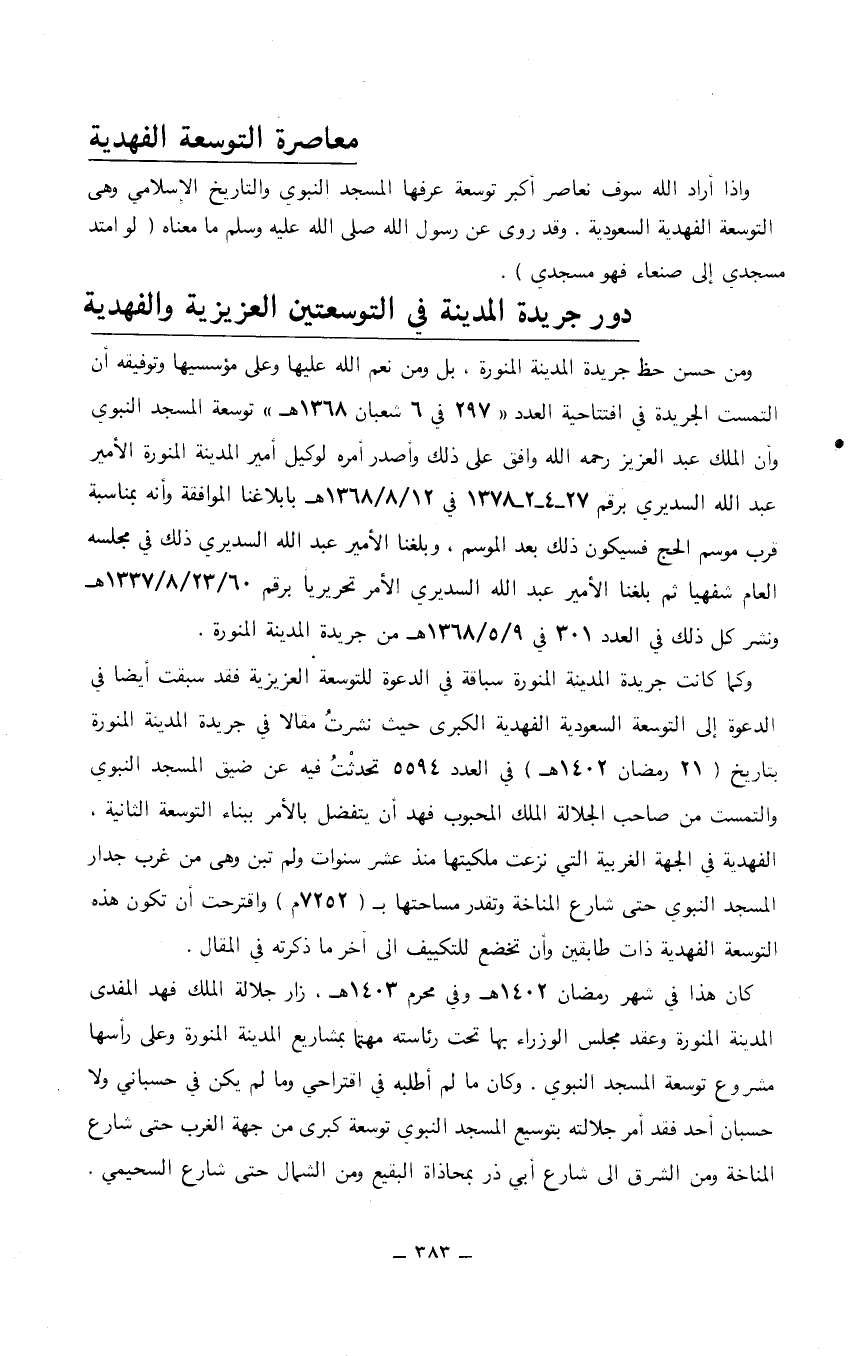 معاصرة التوسعة الفهدية
واذا أراد الله سوف نعاصر أكبر توسعة عرفها المسجد النبوي والتاريخ الإسلامي وهى
التوسعة الفهدية السعودية . وقد روى عن رسول الله صلى الله عليه وسلم ما معناه ( لو امتد
مسجدي إلى صنعاء فهو مسجدي ) .
دور جريدة المدينة في التوسعتين العزيزية والفهدية
ومن حسن حظ جريدة المدينة المنورة ، بل ومن نعم الله عليها وعلى مؤسسيها وتوفيقه أن
التمست الجريدة في افتتاحية العدد « ٢٩٧ في ٦ شعبان ١٣٦٨هـ » توسعة المسجد النبوي
وأن الملك عبد العزيز رحمه الله وافق على ذلك وأصدر أمره لوكيل أمير المدينة المنورة الأمير
عبد الله السديري برقم ٢٧ــ٤ــ٢ــ١٣٧٨ في ١٣٦٨/٨/١٢هـ بابلاغنا الموافقة وأنه بمناسبة
قرب موسم الحج فسيكون ذلك بعد الموسم ، وبلغنا الأمير عبد الله السديري ذلك في مجلسه
العام شفهيا ثم بلغنا الأمير عبد الله السديري الأمر تحريرياً برقم ١٣٣٧/٨/٢٣/٦٠هـ
ونشر كل ذلك في العدد ٣٠١ في ١٣٦٨/٥/٩هـ من جريدة المدينة المنورة .
وكما كانت جريدة المدينة المنورة سباقة في الدعوة للتوسعة العزيزية فقد سبقت أيضا في
الدعوة إلى التوسعة السعودية الفهدية الكبرى حيث نشرتُ مقالا في جريدة المدينة المنورة
بتاريخ ( ٢١ رمضان ١٤٠٢هـ ) في العدد ٥٥٩٤ تحدثْتُ فيه عن ضيق المسجد النبوي
والتمست من صاحب الجلالة الملك المحبوب فهد أن يتفضل بالأمر ببناء التوسعة الثانية ،
الفهدية في الجهة الغربية التي نزعت ملكيتها منذ عشر سنوات ولم تبن وهى من غرب جدار
المسجد النبوي حتى شارع المناخة وتقدر مساحتها بـ ( ٧٢٥٢م ) واقترحت أن تكون هذه
التوسعة الفهدية ذات طابقين وأن تخضع للتكييف الى آخر ما ذكرته في المقال .
كان هذا في شهر رمضان ١٤٠٢هـ وفي محرم ١٤٠٣هـ ، زار جلالة الملك فهد المفدى
المدينة المنورة وعقد مجلس الوزراء بها تحت رئاسته مهتما بمشاريع المدينة المنورة وعلى رأسها
مشروع توسعة المسجد النبوي . وكان ما لم أطلبه في اقتراحي وما لم يكن في حسباني ولا
حسبان أحد فقد أمر جلالته بتوسيع المسجد النبوي توسعة كبرى من جهة الغرب حتى شارع
المناخة ومن الشرق الى شارع أبي ذر بمحاذاة البقيع ومن الشمال حتى شارع السحيمي .
ــ ٣٨٣ ــ